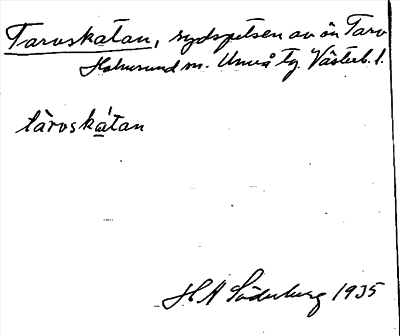 Tarvskatan, sydspetsen av ön Tarv
Holmsund sn. Umeå tg. Västerb. l.
tàrvskátan
H A Söderberg 1935